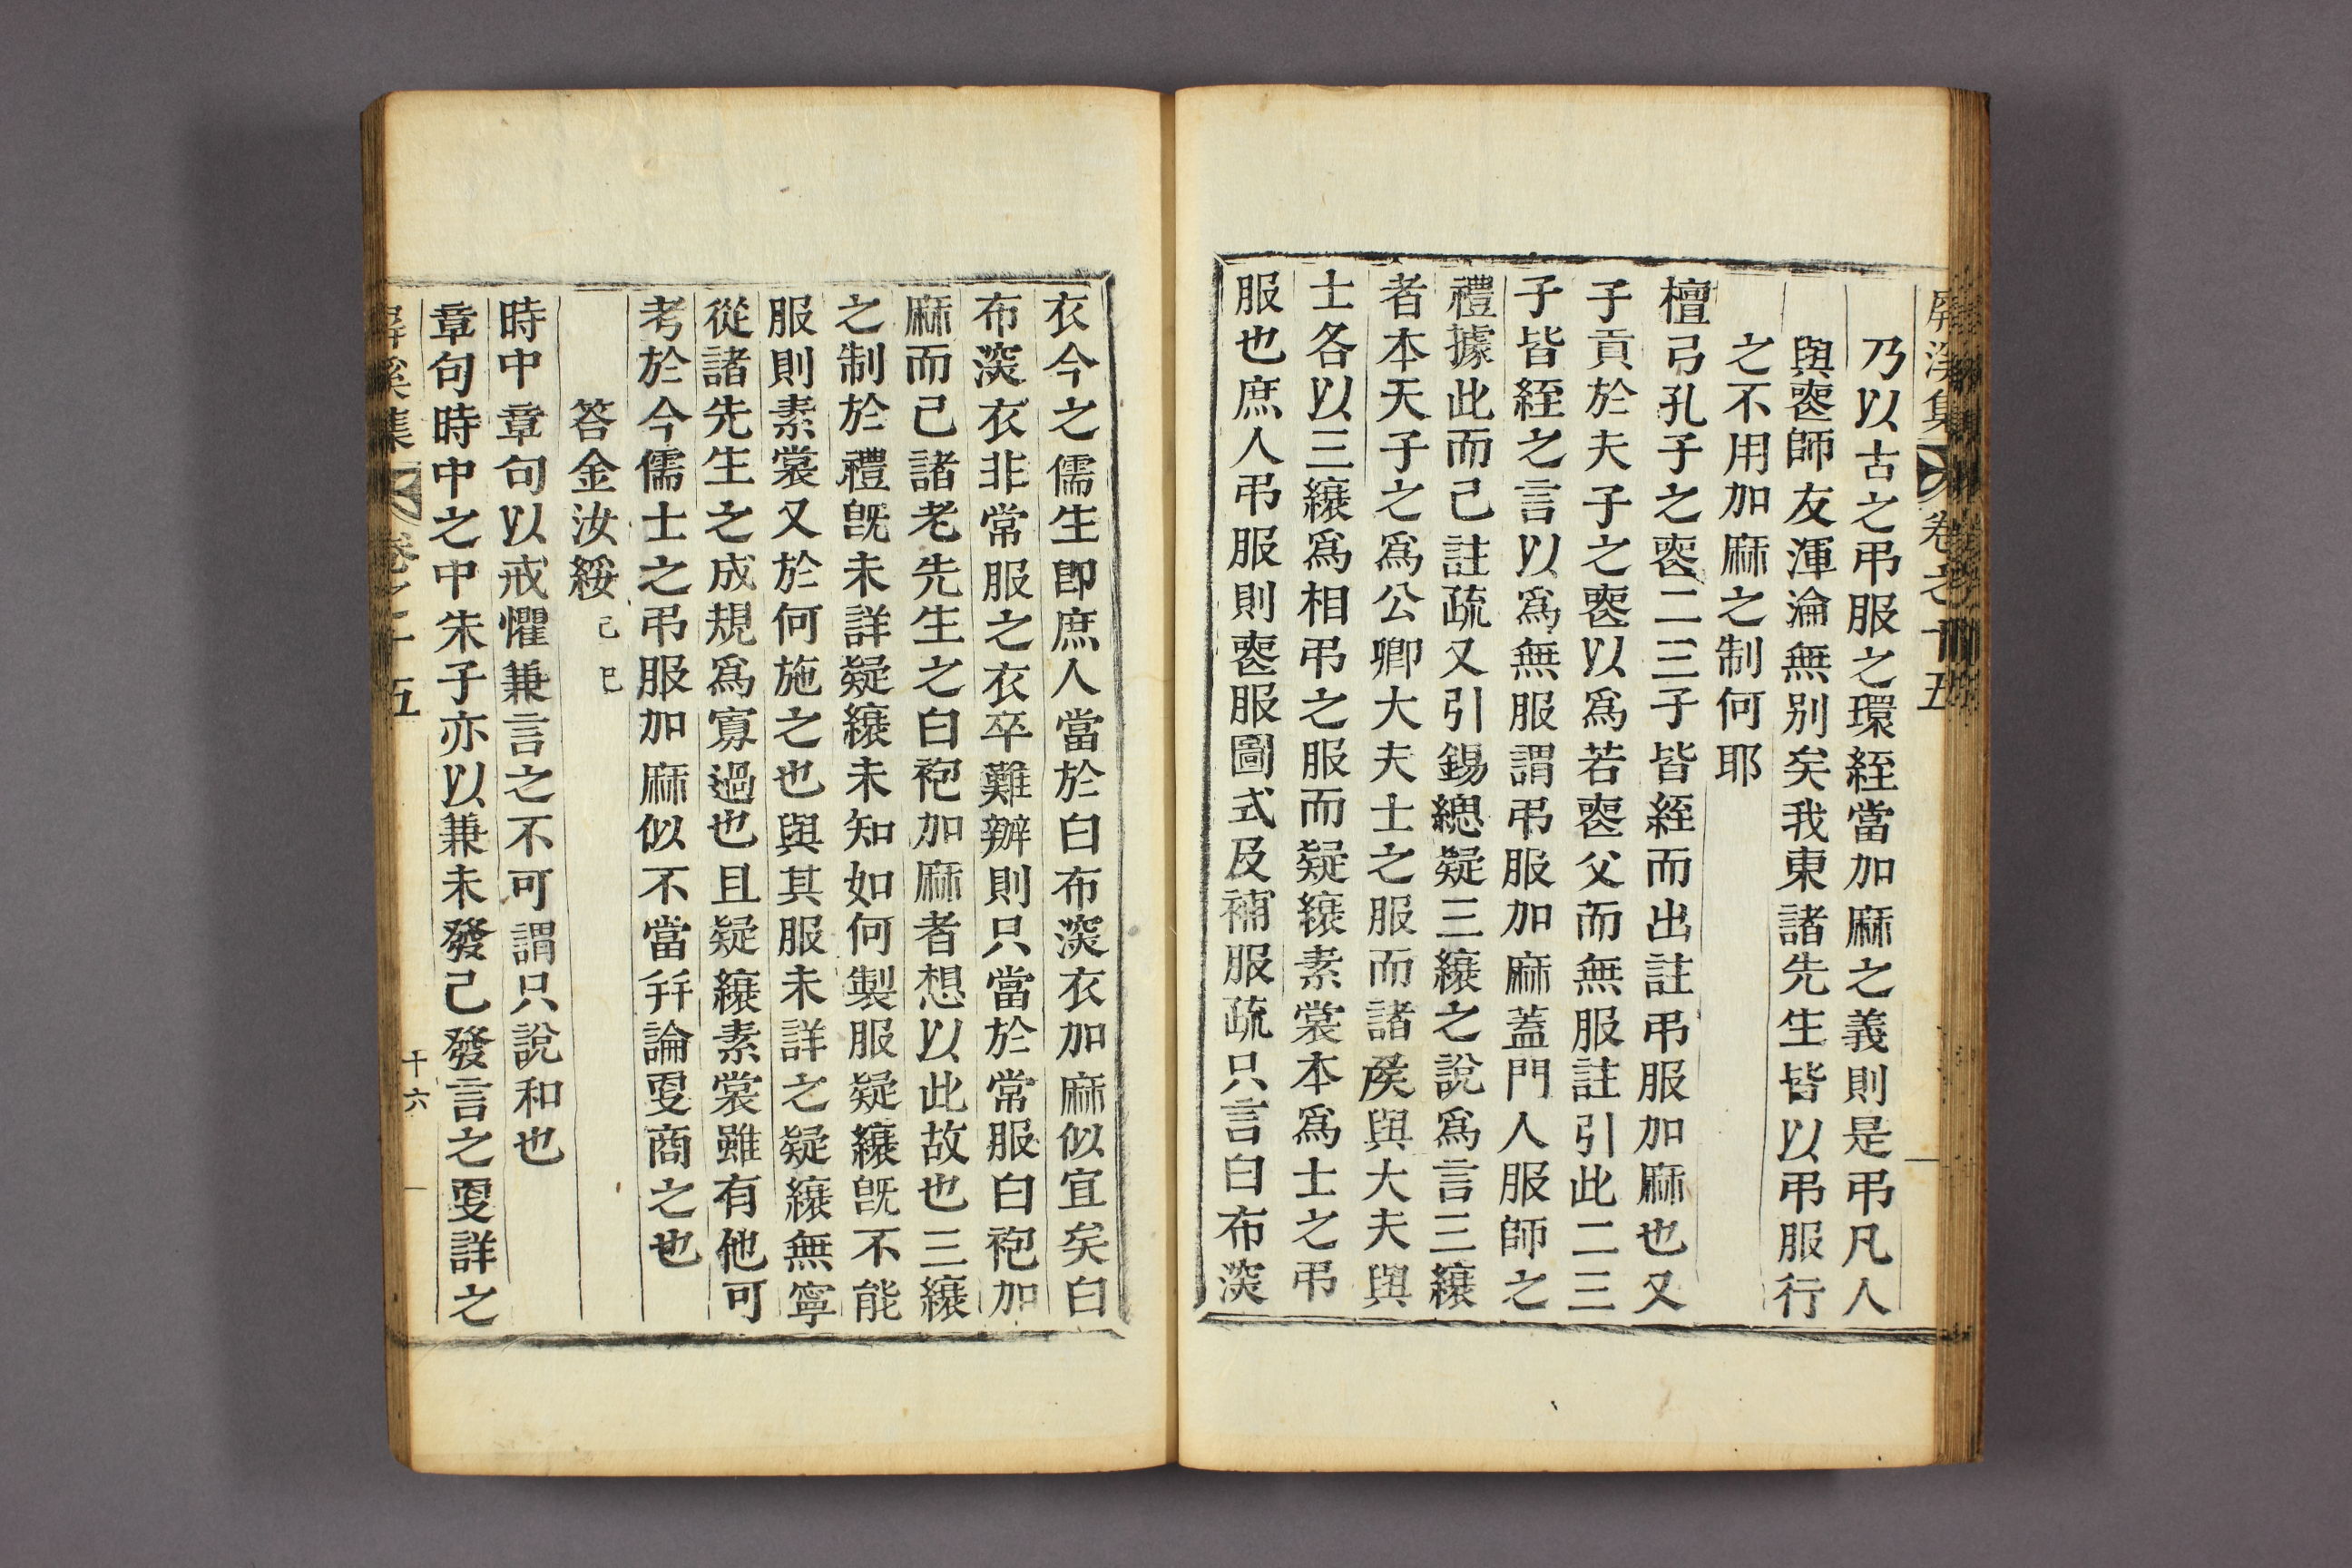 乃以古之弔服之環絰當加麻之義則是弔凡人
與喪師友渾淪無別矣我東諸先生皆以弔服行
之不用加麻之制何耶
檀弓孔子之喪二三子皆絰而出註弔服加麻也又
子貢於夫子之喪以爲若喪父而無服註引此二三
子皆絰之言以爲無服謂弔服加麻蓋門人服師之
禮據此而已註疏又引錫緦疑三縗之說爲言三縗
者本天子之爲公卿大夫士之服而諸侯與大夫與
士各以三縗爲相弔之服而疑縗素裳本爲士之弔
服也庶人弔服則喪服圖式及補服疏只言白布深
衣今之儒生卽庶人當於白布深衣加麻似宜矣白
布深衣非常服之衣卒難辦則只當於常服白袍加
麻而已諸老先生之白袍加麻者想以此故也三縗
之制於禮旣未詳疑縗未知如何製服疑縗旣不能
服則素裳又於何施之也與其服未詳之疑縗無寧
從諸先生之成規爲寡過也且疑縗素裳雖有他可
考於今儒士之弔服加麻似不當幷論更商之也
答金汝綏 己巳
時中章句以戒懼兼言之不可謂只說和也
章句時中之中朱子亦以兼未發已發言之更詳之
屛溪集 卷之十五 十六